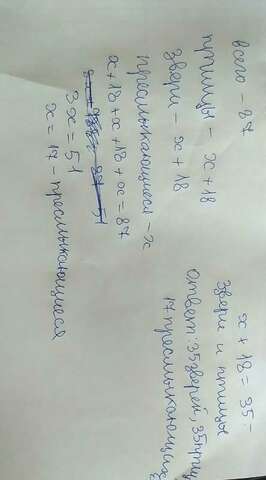 всего - 87
птицы - x + 18
звери - x + 18
пресмыкающиеся - x
x + 18 + x + 18 + x = 87
3x = 51
x = 17 - пресмыкающиеся
x + 18 = 35 -
звери и птицы
ответ: 35 зверей, 35 птиц
17 пресмыкающихся